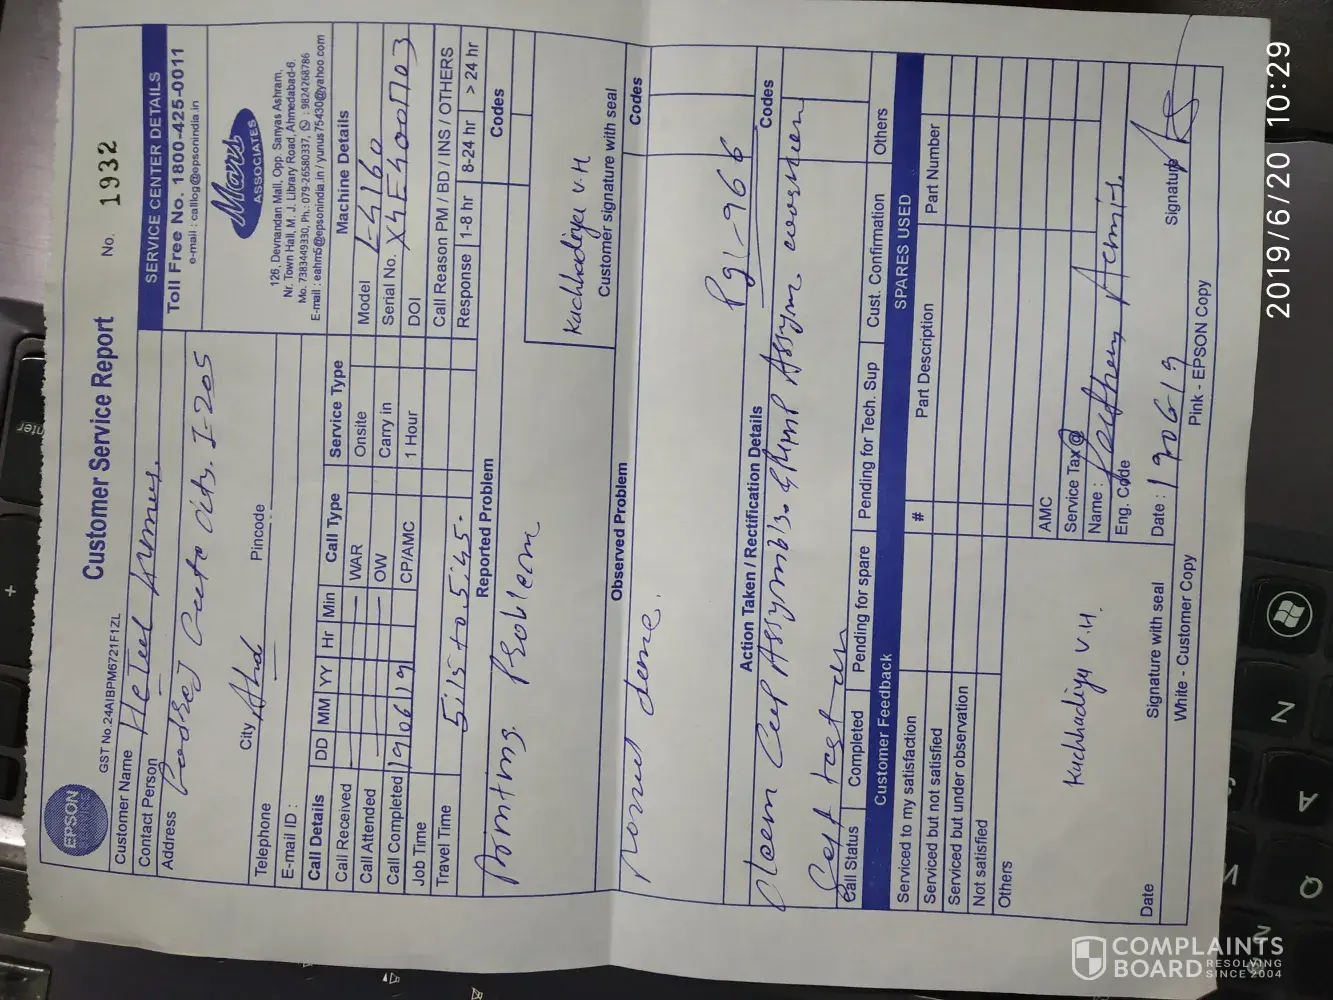 Customer Service Report
No. 1932
EPSON
GST No.24AIBPM6721F1ZL
Customer Name
Contact Person
Address
I-205
City Ahd
Pincode
Telephone
E-mail ID :
SERVICE CENTER DETAILS
Toll Free No. 1800-425-0011
e-mail : calllog@epsonindia.in
Mars
ASSOCIATES
126, Devnandan Mall, Opp. Sanyas Ashram,
Nr. Town Hall, M. J. Library Road, Ahmedabad-6.
Mo. 7383449330, Ph.: 079-26580337, : 9824268786
E-mail : eahm5@epsonindia.in / yunus75430@yahoo.com
Call Details DD MM YY Hr Min Call Type Service Type Machine Details
Call Received WAR Onsite Model L4160
Call Attended OW Carry in Serial No.
Call Completed 190619 CP/AMC 1 Hour DOI
Job Time Call Reason PM / BD / INS / OTHERS
Travel Time 5.15 to 5.45 Response 1-8 hr 8-24 hr > 24 hr
Reported Problem Codes
Printing Problem
Kuchhadiya V.H
Customer signature with seal
Observed Problem Codes
done.
Pg1-966
Action Taken / Rectification Details Codes
Clean Cap
Self test
Call Status Completed Pending for spare Pending for Tech. Sup Cust. Confirmation Others
Customer Feedback SPARES USED
Serviced to my satisfaction # Part Description Part Number
Serviced but not satisfied
Serviced but under observation
Not satisfied
Others
AMC
Service Tax@
Name :
Eng. Code
Kuchhadiya V.H.
Date Signature with seal Date : 190619 Signature
White - Customer Copy Pink - EPSON Copy
2019/6/20 10:29
COMPLAINTS
BOARD RESOLVING
SINCE 2004